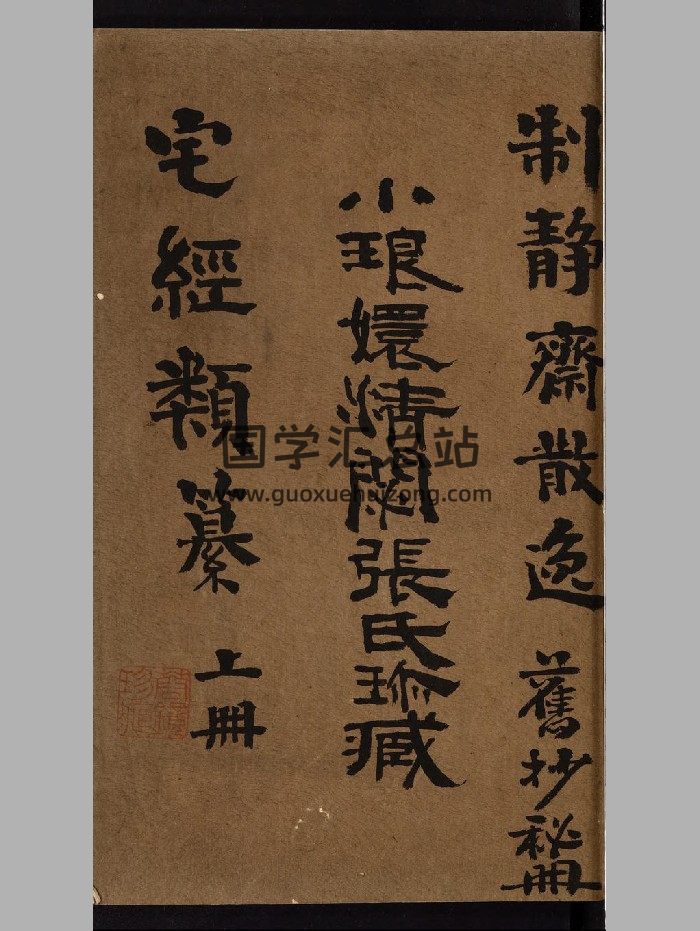 制静齋散逸 舊抄秘冊
小琅嬛清閟張氏珎藏
宅經類纂 上冊
国学汇总站
www.guoxuehuizong.com